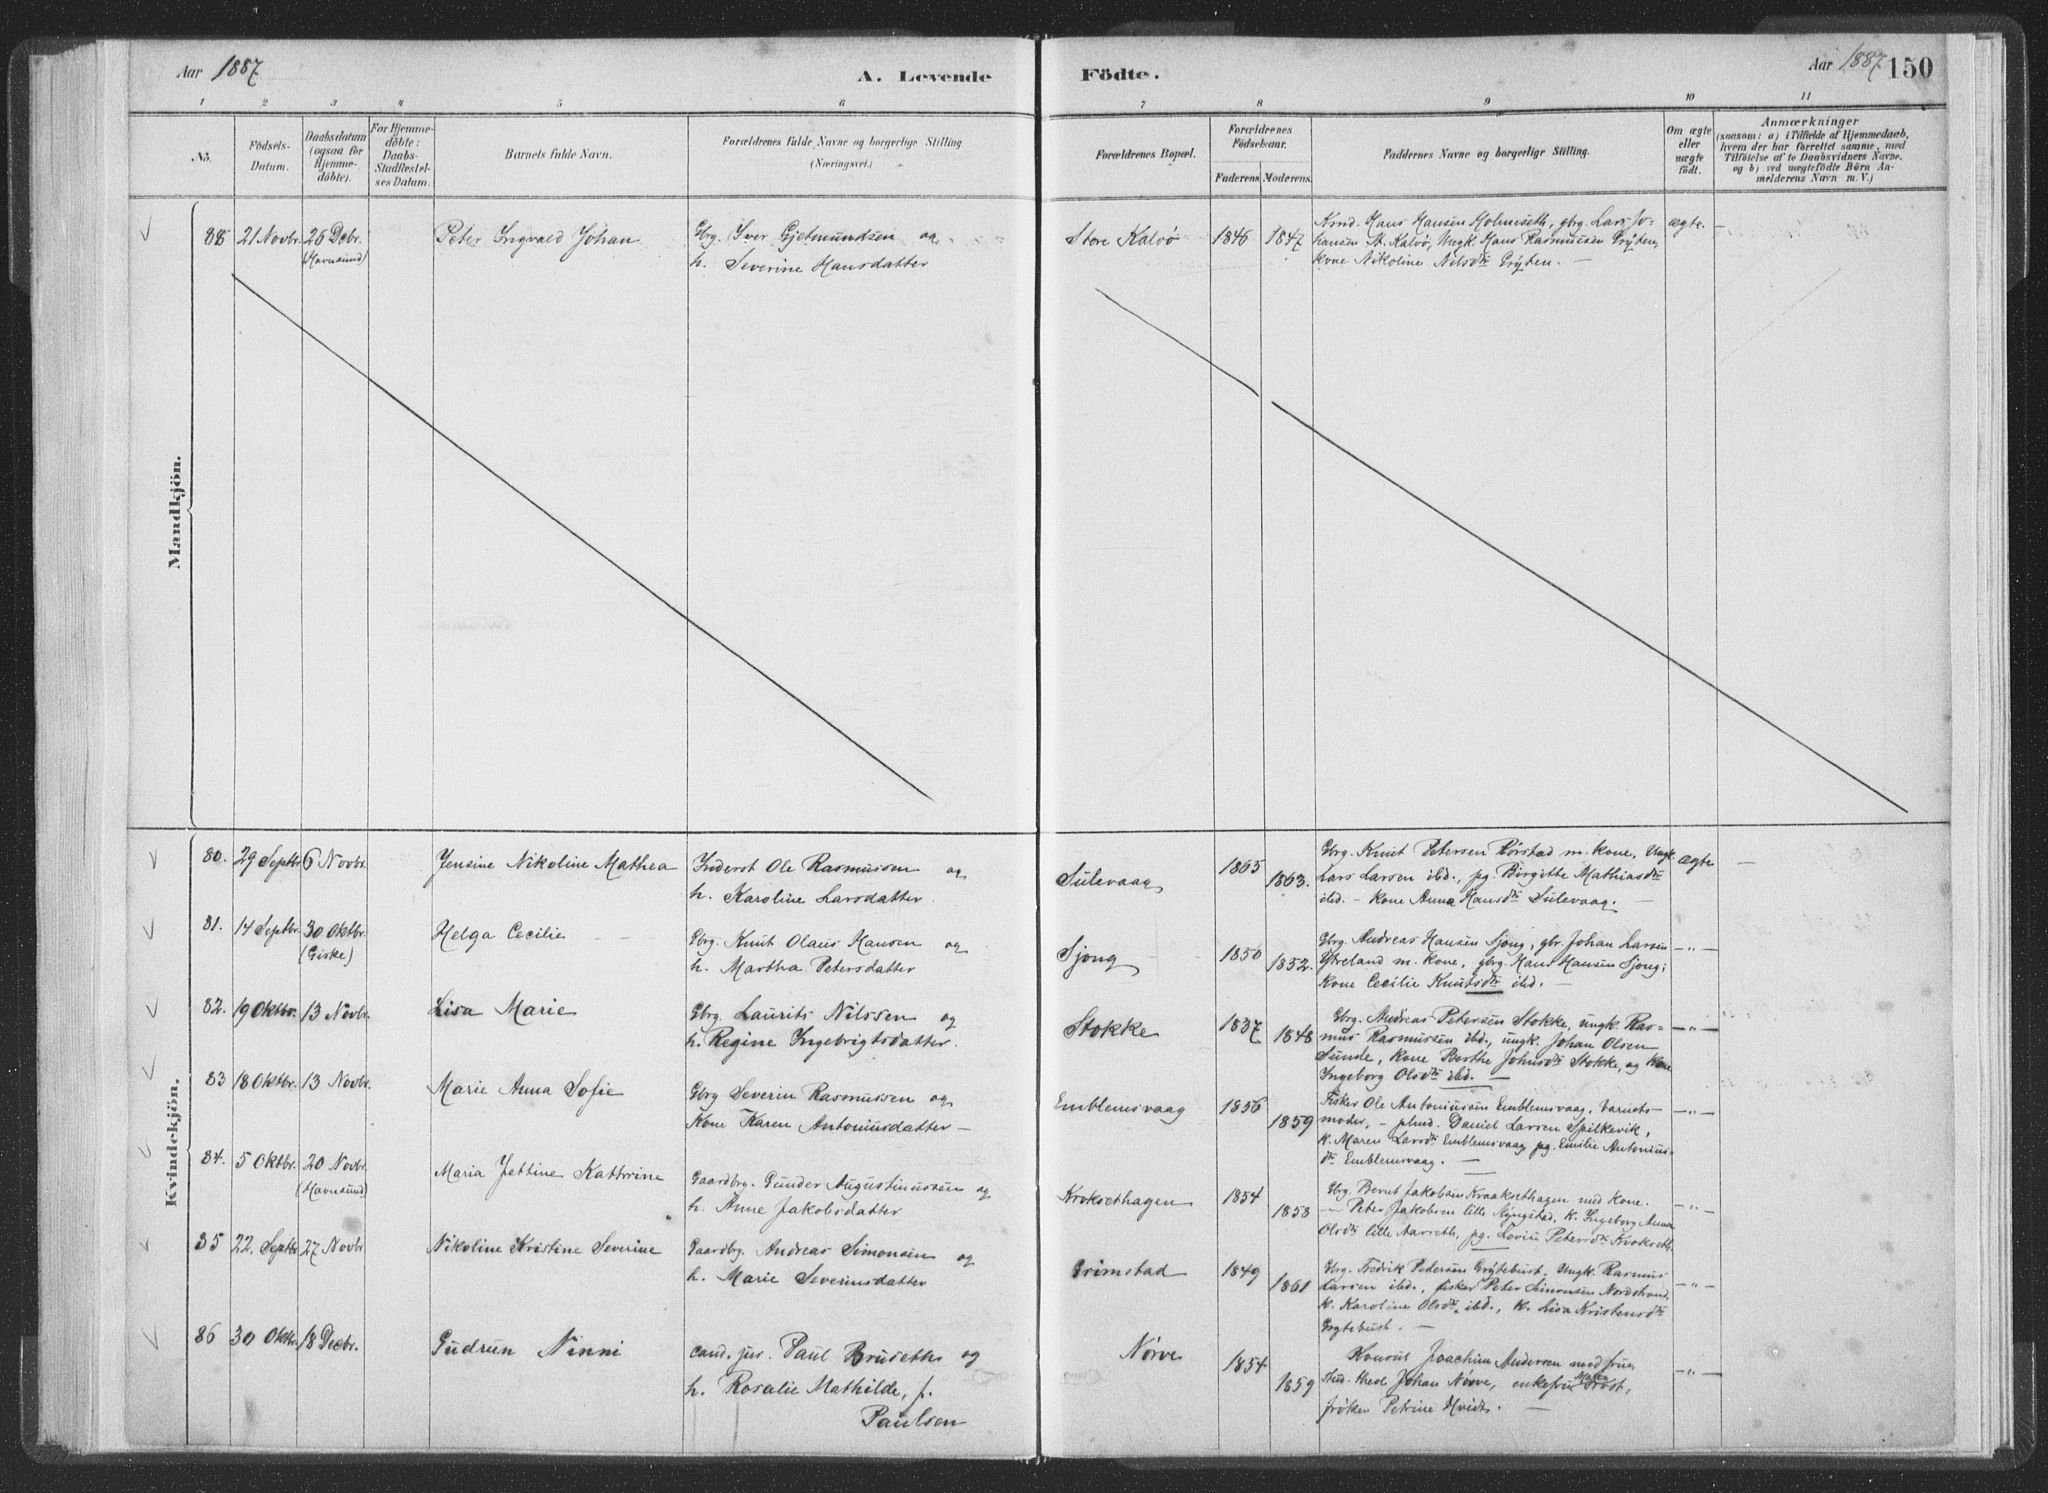 Aar 1887
A. Levende
Födte.
Aar 1887
150
1 2 3 4 5 6 7 8 9 10 11
No.
Födsels-
Datum.
Daabsdatum
(ogsaa for
Hjemme-
döbte).
For Hjemme-
döbte:
Daabs-
Stadfæstel-
ses Datum.
Barnets fulde Navn.
Forældrenes fulde Navne og borgerlige Stilling
(Næringsvei.)
Forældrenes Bopæl.
Forældrenes
Födselsaar.
Faderens Moderens.
Faddernes Navne og borgerlige Stilling.
Om ægte
eller
uægte
födt.
Anmærkninger
(saasom: a) i Tilfælde af Hjemmedaab,
hvem der har forrettet samme, med
Tilföielse af to Daabsvidners Navne.
og b) ved uægtefödte Börn An-
melderens Navn m. V.)
Mandkjön.
88 21 Novbr. 26 Debr.
(Havnsund)
Peter Ingvald Johan
Gbrg. Iver Gjetmundsen og
h. Severine Hansdatter
Store Kalvö
1846 1847
Kmd. Hans Hansen Holmseth, gbrg. Lars Jo-
hansen St. Kalvö, Ungk. Hans Rasmussen Gryten,
kone Nikoline Nilsdtr Gryten. —
ægte. —
Kvindekjön.
80. 29 Septbr. 6 Novbr.
Jensine Nikoline Mathea
Inderst Ole Rasmussen og
h. Karoline Larsdatter.
Sulevaag
1865 1863.
Gbrg. Knut Petersen Rörstad m. kone, Ungk.
Lars Larsen ibd., pg. Birgitte Mathiasdtr
ibd. - kone Anna Hansdtr Sulevaag. —
ægte —
81. 14 Septbr. 30 Oktbr.
(Giske)
Helga Cecilie
Gbrg. Knut Olaus Hansen og
h. Martha Petersdatter
Sjong
1850 1852.
Gbrg. Andreas Hansen Sjong, gbr. Johan Larsen
Ytreland m. kone, gbrg. Hans Hansen Sjong;
kone Cecilie Knutsdtr ibd. —
—"—
82. 19 Oktbr. 13 Novbr.
Lisa Marie
Gbrg. Laurits Nilssen og
h. Regine Ingebrigtsdatter.
Stokke
1837 1848
Gbrg. Andreas Petersen Stokke, ungk. Ras-
mus Rasmussen ibd., ungk. Johan Olsen
Sunde, kone Berthe Johnsdtr Stokke, og kone
Ingeborg Olsdtr ibd. —
—"—
83 18 Oktbr. 13 Novbr.
Marie Anna Sofie
Gbrg Severin Rasmussen og
Kone Karen Antoniusdatter —
Emblemsvaag
1856 1859
Fisker Ole Antoniusen Emblemsvaag, barnets-
moder, - plmd. Daniel Larsen Spilkevik,
k. Maren Larsdtr Emblemsvaag, pg. Emilie Antonius-
dtr Emblemsvaag. —
—"—
84. 5 Oktbr. 20 Novbr.
(Havnsund)
Maria Jettine Kathrine
Gaardbrg. Gunder Augustinussen og
h. Anne Jakobsdatter
Kroksethagen
1854 1858
Gbrg. Bernt Jakobsen Kraaksethagen med kone.
—"— Peter Jakobsen lille , k. Ingeborg Anna
Olsdtr lille , pg. Lovise Petersdtr Krokseth.
—"—
85 22. Septbr. 27 Novbr.
Nikoline Kristine Severine
Gaardbrg. Andreas Simonsen og
h. Marie Severinsdatter
Grimstad
1849 1861
Gbrg. Fredrik Pedersen Grytebust, Ungk. Rasmus
Larsen ibd., fisker Peter Simonsen Nordstrand,
k. Karoline Olsdtr ibd., k. Lisa Kristensdtr
Grytebust. —
—"—
86 30 Oktbr. 18 Decbr.
Gudrun Ninni
cand. jur. Paul Brudeth og
h. Rosalie Mathilde, f.
Paulsen
Nörve
1854 1859
Konsul Joachim Andersen med frue,
stud. theol Johan Nörve, enkefru Malen Frost,
fröken Petrine Hvidt. —
—"—